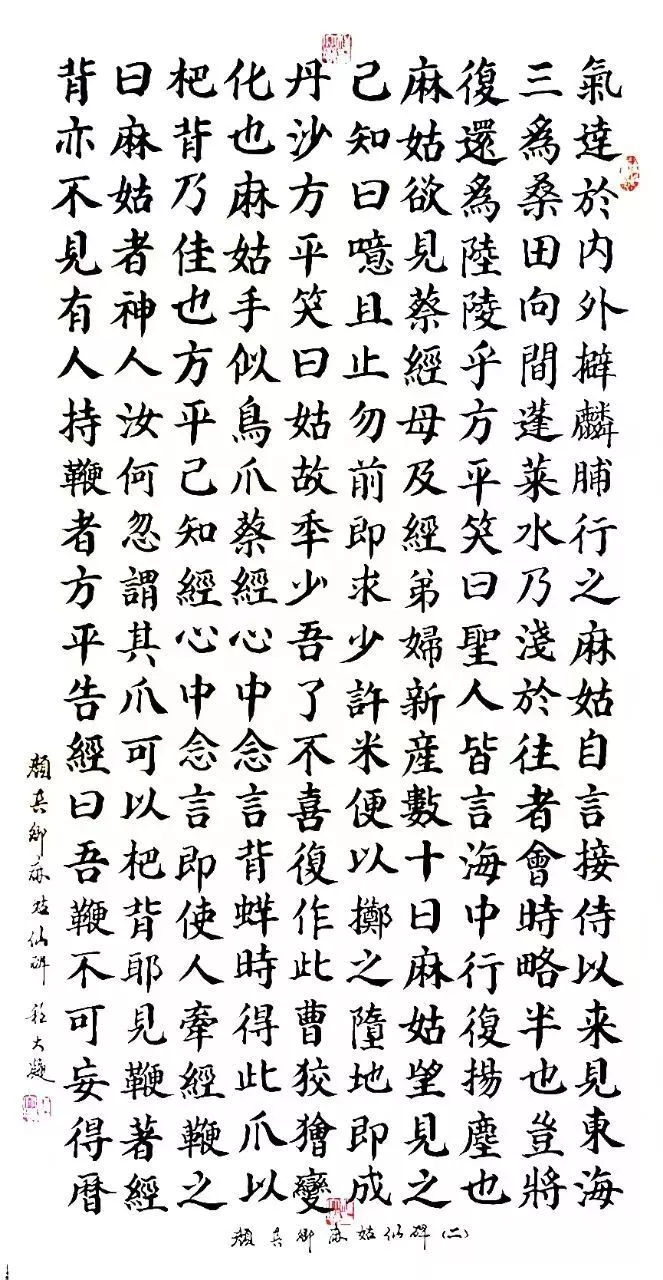 氣達於内外擗麟脯行之麻姑自言接侍以来見東海
三爲桑田向間蓬莱水乃淺於往者會時略半也豈將
復還爲陸陵乎方平笑曰聖人皆言海中行復揚塵也
麻姑欲見蔡經母及經弟婦新産數十日麻姑望見之
己知曰噫且止勿前即求少許米便以擲之墮地即成
丹沙方平笑曰姑故秊少吾了不喜復作此曹狡獪變
化也麻姑手似鳥爪蔡經心中念言背蛘時得此爪以
杷背乃佳也方平己知經心中念言即使人牽經鞭之
曰麻姑者神人汝何忽謂其爪可以杷背耶見鞭著經
背亦不見有人持鞭者方平告經曰吾鞭不可妄得暦
顏真卿麻姑仙碑 程大題
顏真卿麻姑仙碑(二)